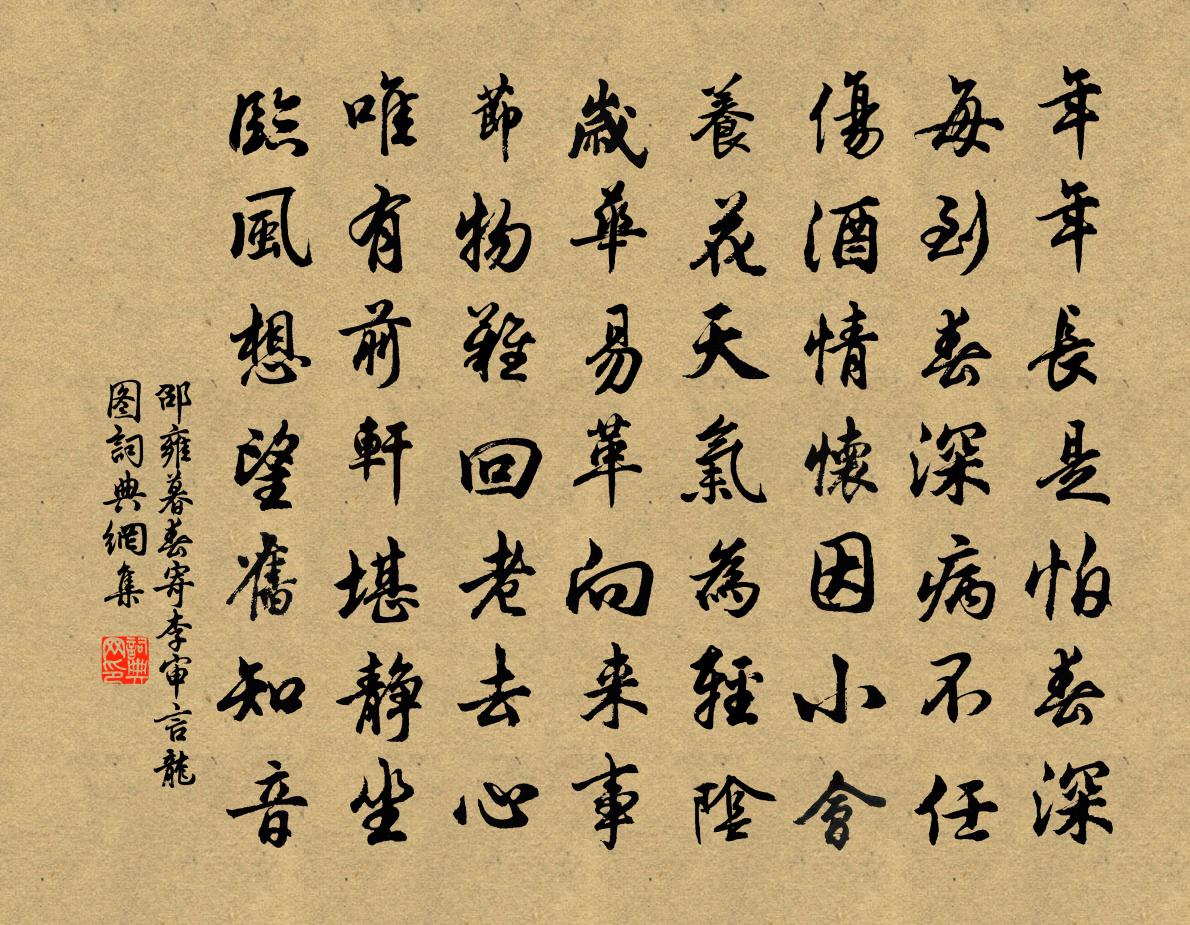 年年長是怕春深
每到春深病不任
傷酒情懷因小會
養花天氣為輕陰
歲華易革向来事
節物難回老去心
唯有前軒堪靜坐
臨風想望舊知音
邵雍暮春寄李审言龍
图詞典網集
詞典
网印